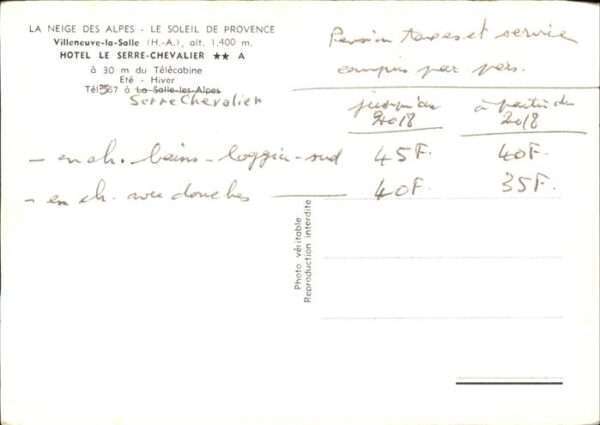 LA NEIGE DES ALPES - LE SOLEIL DE PROVENCE
Villeneuve-la-Salle (H.-A.), alt. 1.400 m.
HOTEL LE SERRE-CHEVALIER ★★ A
à 30 m du Télécabine
Eté - Hiver
Tél. 67 à La Salle-les-Alpes
Serre Chevalier
Pension taxes et service
compris par pers.
jusqu'au à partir du
20/8 20/8
- en ch. bains - loggia - sud 45F. 40F.
- en ch. avec douches 40F. 35F.
Photo véritable
Reproduction interdite